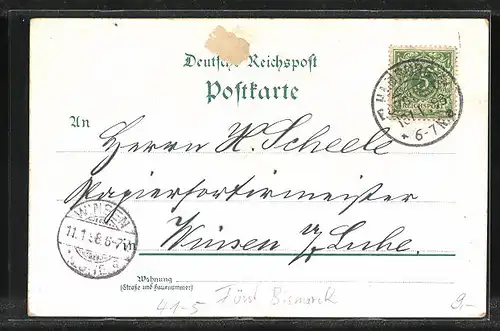 Deutsche Reichspost
Postkarte
5
An
6-7
Herrn H. Scheele
Papiersortirmeister
WINSEN
11.1.98.6-7
in Winsen a/Luhe.
Wohnung
(Straße und Hausnummer)
41-5 Fürst Bismarck
9.-